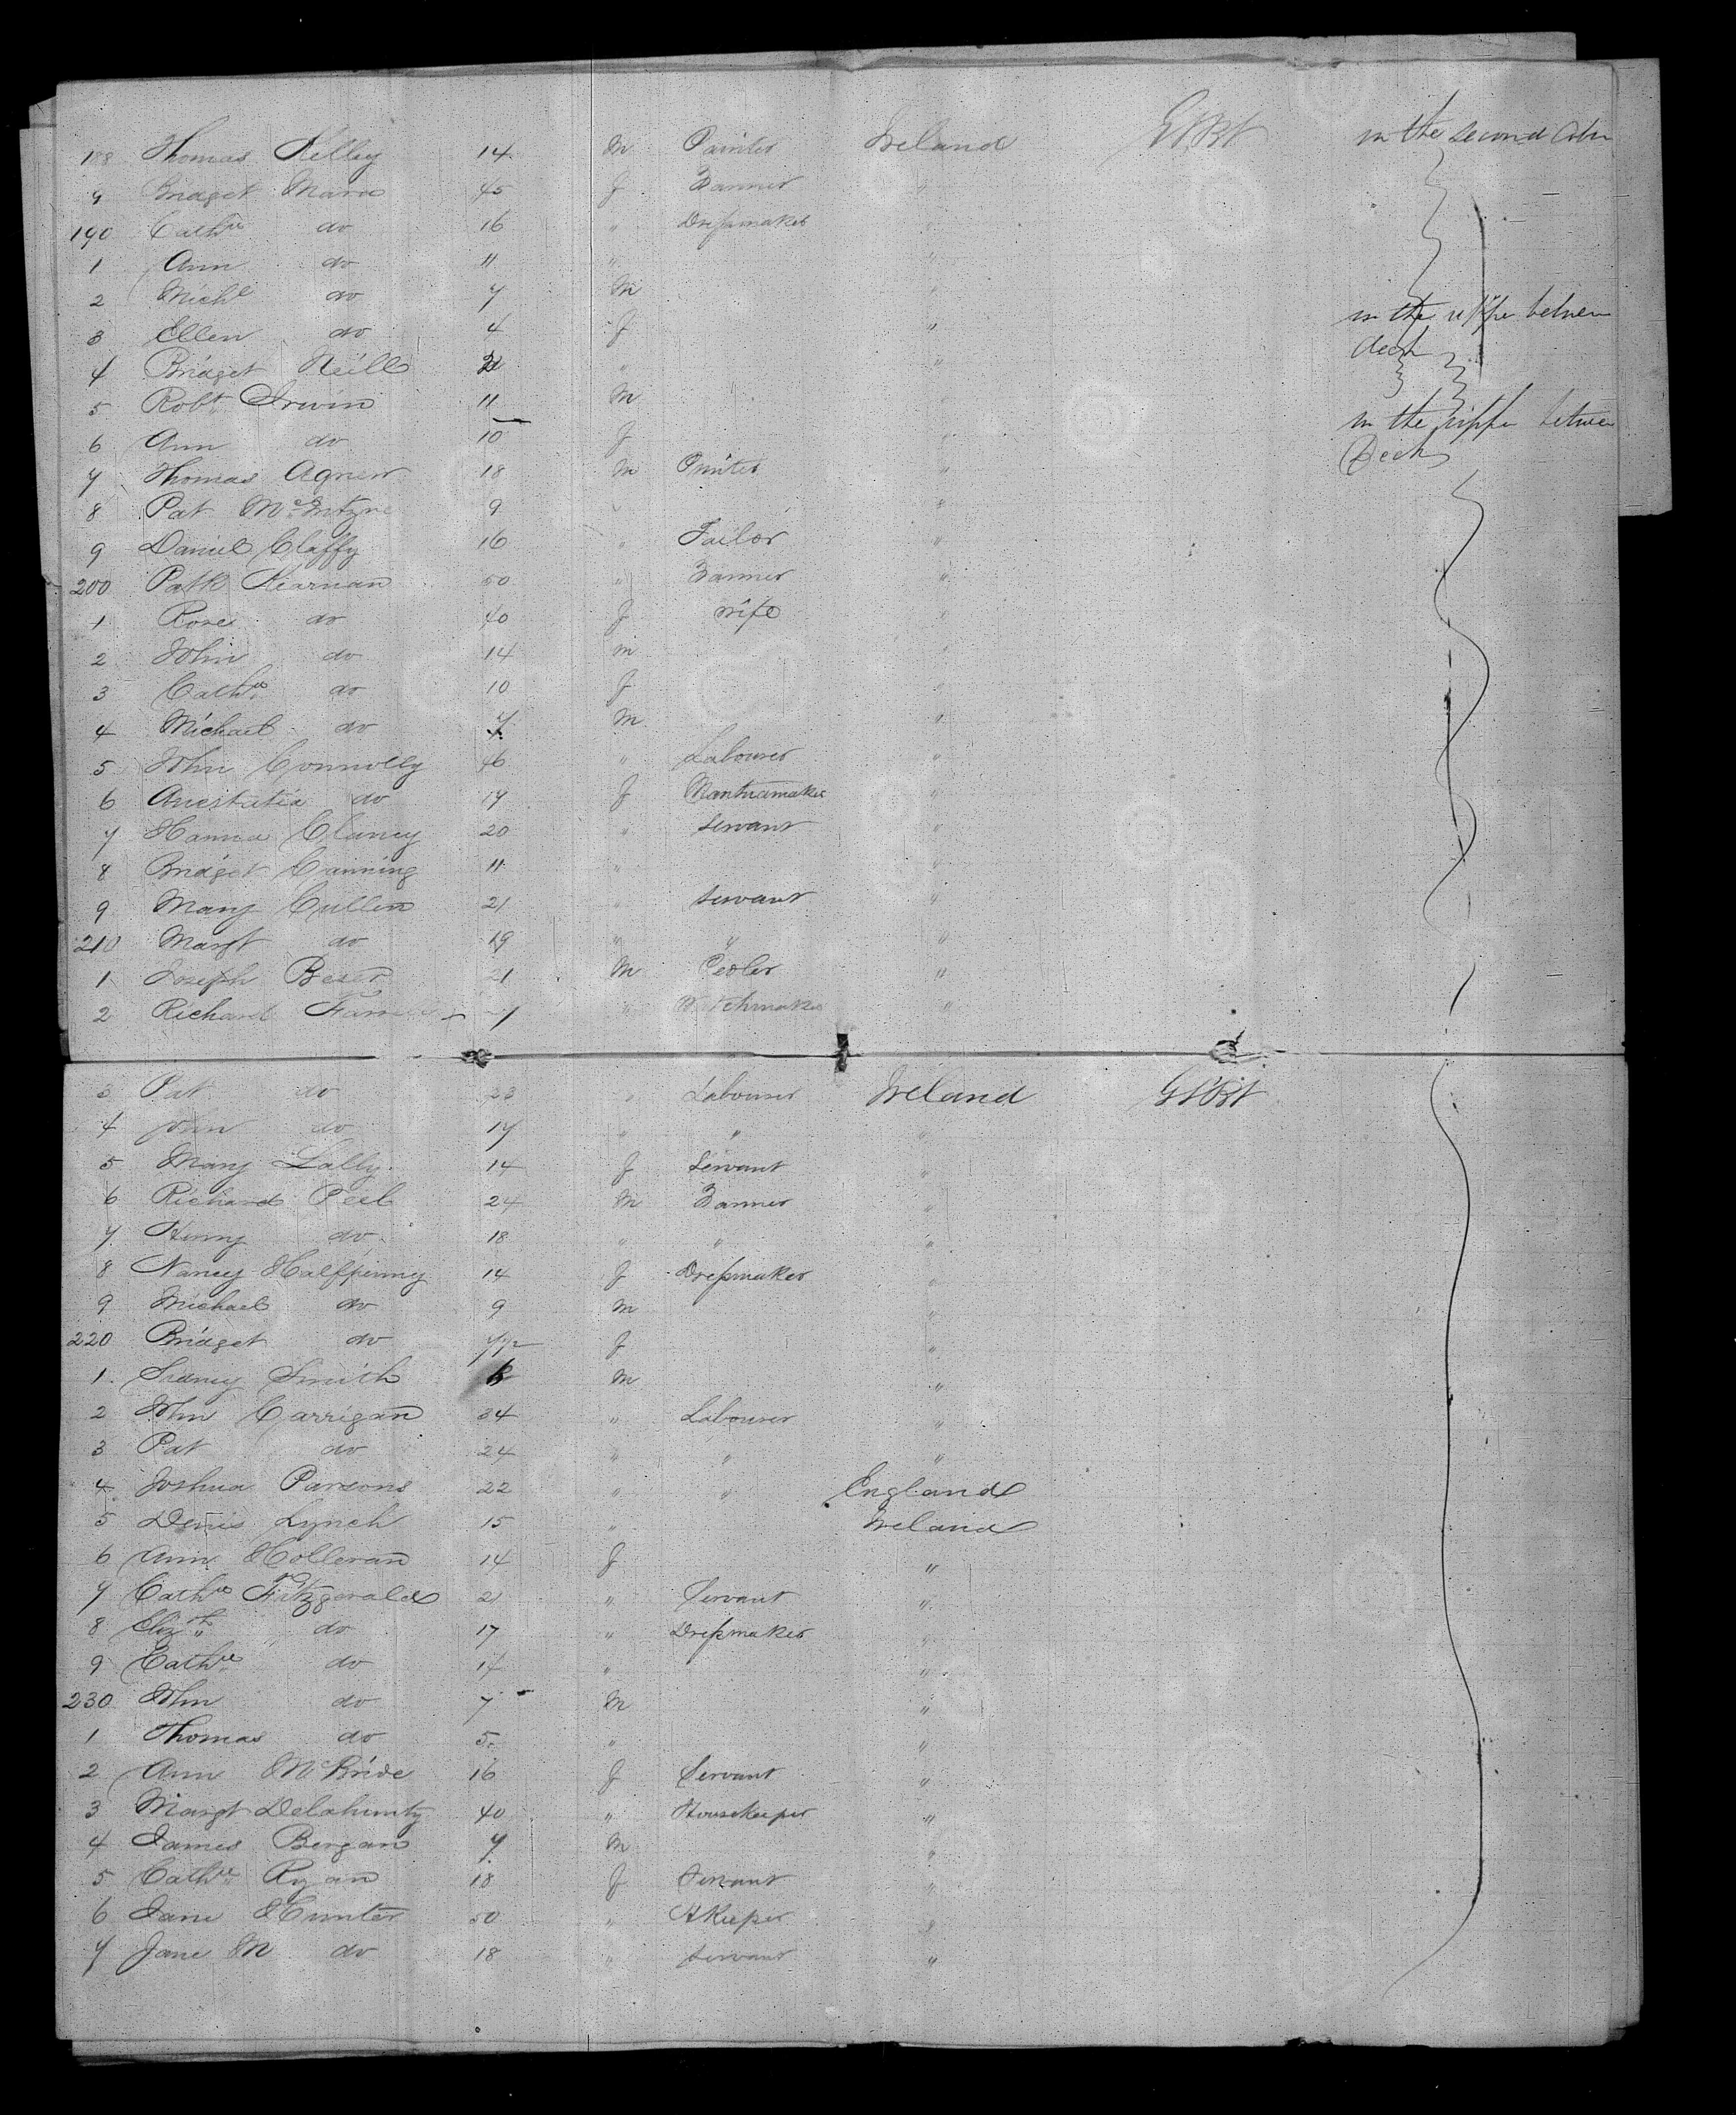 188 Thomas Kelley 14 M Painter Ireland Gt Bt in the second Cabn
9 Bridget Mara 45 f Farmer "
190 Cathne do 16 " Dressmaker "
1 Ann do 11 " "
2 Michl do 7 M "
3 Ellen do 4 f " in the upper between
4 Bridget Neill " " deck
5 Robt Irwin 11 M "
6 Ann do 10 f " in the upper between
7 Thomas Agnew 18 M Painter " Deck
8 Pat McEntyre 9 " "
9 Daniel Claffy 16 " Tailor "
200 Patk Kiernan 50 " Farmer "
1 Rose do 40 f wife "
2 John do 14 m "
3 Cathne do 10 f "
4 Michael do 7 M "
5 John Connolly 46 " Labourer "
6 Anestatia do 17 f Mantuamaker "
7 Hanna Clancy 20 " Servant "
8 Bridget Canning 11 " "
9 Mary Cullen 21 " servant "
210 Margt do 19 " " "
1 Joseph Beser 21 M Pedler "
2 Richard " Watchmaker "
3 Pat do 23 " Labourer Ireland Gt Bt
4 John do 17 " " "
5 Mary Lally 14 f Servant "
6 Richard Peel 24 M Farmer "
7 Henry do 18 " " "
8 Nancy Halfpenny 14 f Dressmaker "
9 Michael do 9 m "
220 Bridget do f "
1 Sidney Smith M "
2 John Carrigan 34 " Labourer "
3 Pat do 24 " " "
4 Joshua Parsons 22 " " England
5 Denis Lynch 15 " Ireland
6 Ann Holleran 14 f "
7 Cathne Fitzgerald 21 " Servant "
8 Elizth do 17 " Dressmaker "
9 Cathne do 14 " "
230 John do 7 M "
1 Thomas do 5 " "
2 Ann McBride 16 f Servant "
3 Margt Delahunty 40 " Housekeeper "
4 James Bergan 7 M "
5 Cathne Ryan 18 f Servant "
6 Jane Hunter 50 " HKeeper "
7 Jane M do 18 " servant "